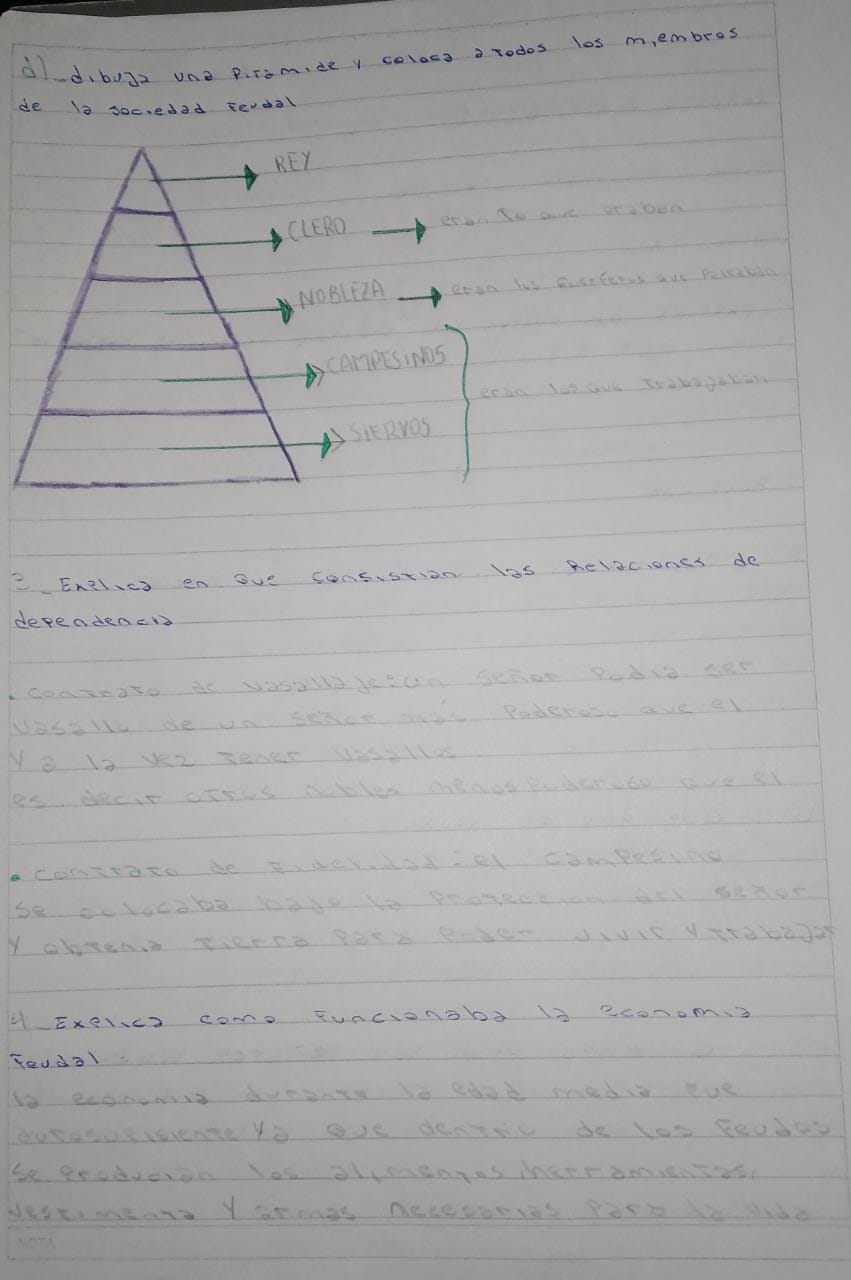 d)_dibuja una Piramide y coloca a todos los miembros
de la sociedad Feudal
REY
CLERO eran lo que oraban
NOBLEZA eran los Guerreros que Peleaban
CAMPESINOS
eran los que trabagaban
SIERVOS
3_Explica en que consistian las Relaciones de
dependencia
. contrato de vasallaje: un señor Podia ser
vasallo de un señor más Poderoso que el
Y a la vez tener vasallos
es decir otros nobles menos Poderoso que el
• contrato de Fidelidad: el campesino
se colocaba bajo la Proteccion del señor
Y obtenia tierra Para Poder vivir Y trabajar
4_Explica como Funcionaba la economia
Feudal:
la economia durante la edad media Fue
autosuficiente Ya que dentro de los Feudos
se Producian los alimentos, herramientas,
vestimenta Y armas necesarias Para la vida
NOTA